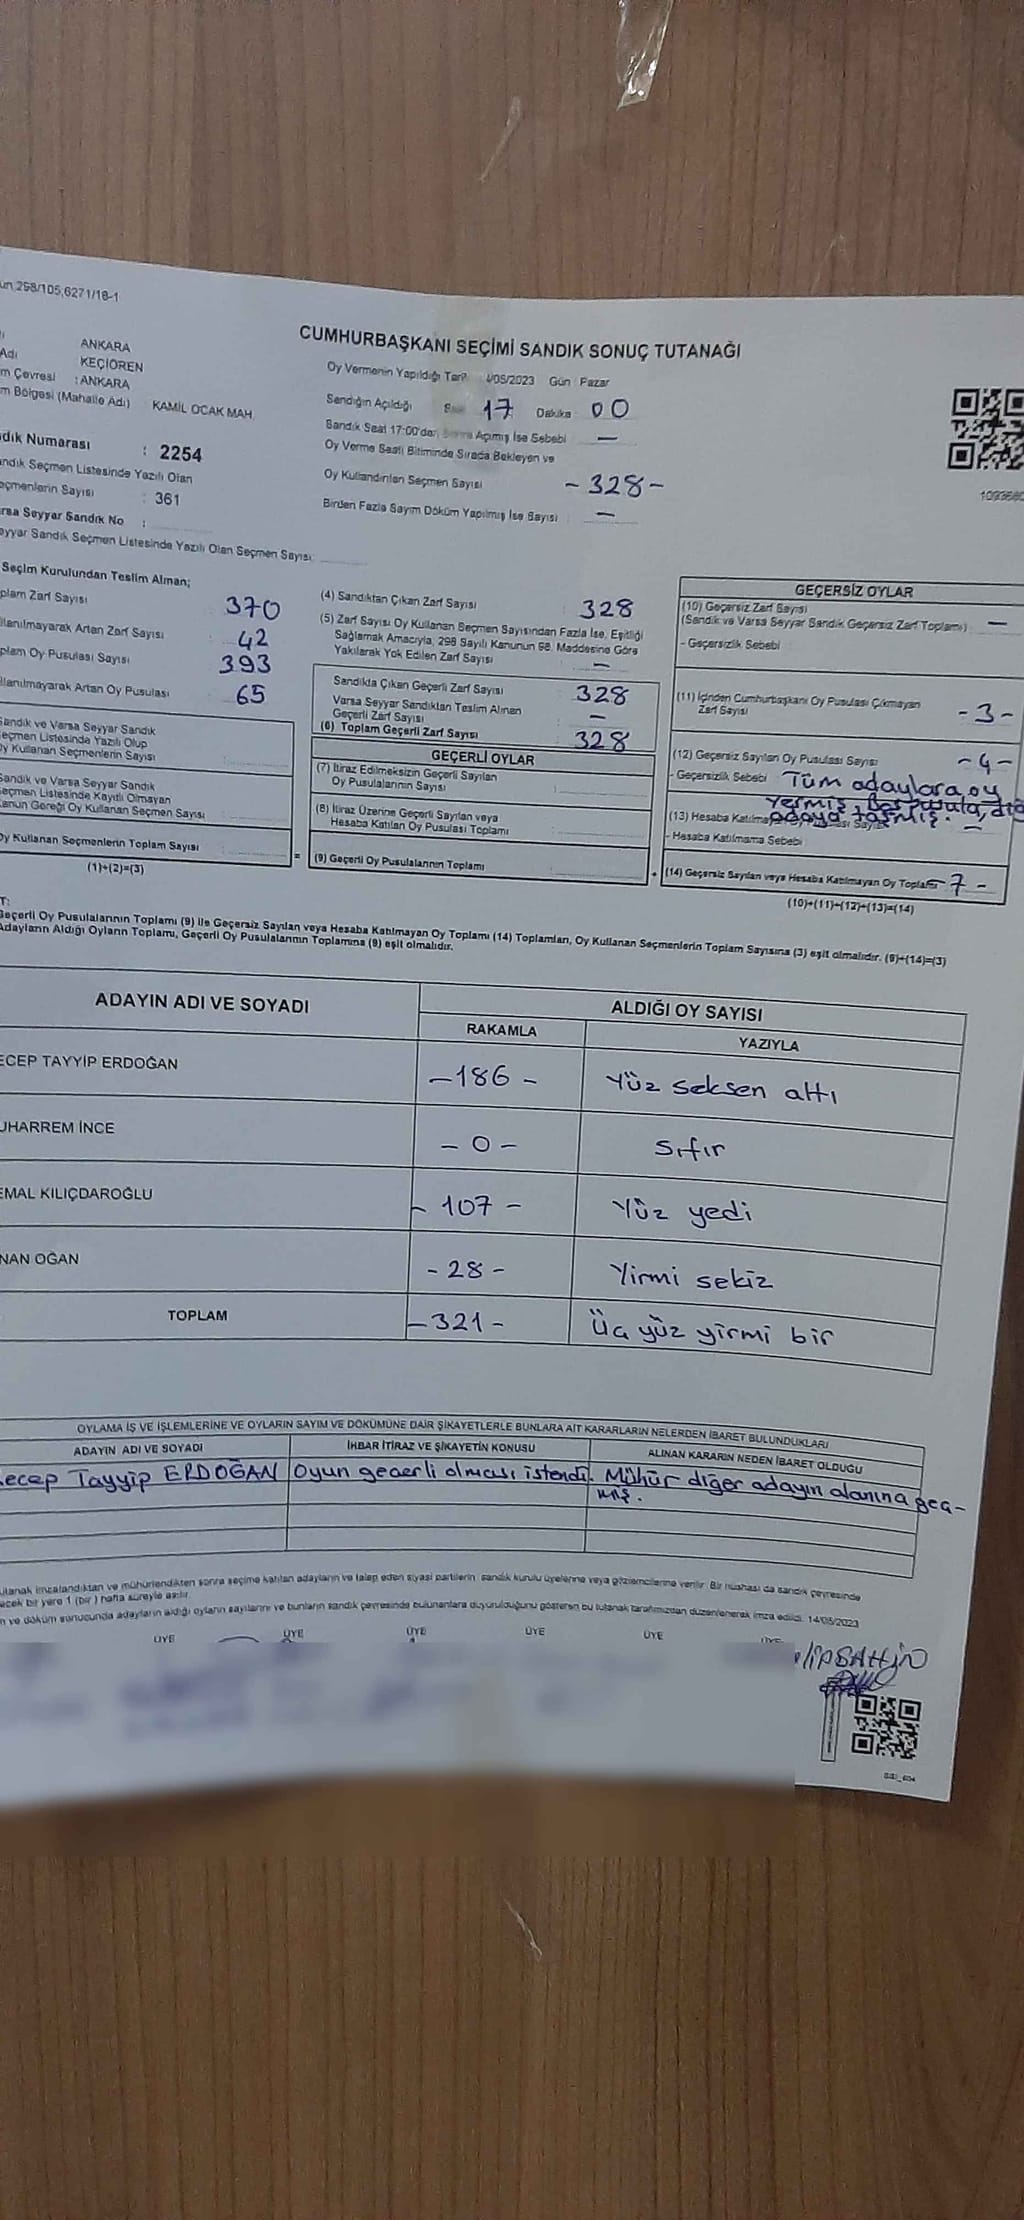 un,298/105,6271/18-1
CUMHURBAŞKANI SEÇİMİ SANDIK SONUÇ TUTANAĞI
ANKARA
Adı KEÇİÖREN
m Çevresi : ANKARA
m Bölgesi (Mahalle Adı) KAMİL OCAK MAH.
dık Numarası : 2254
andık Seçmen Listesinde Yazılı Olan
eçmenlerin Sayısı : 361
rsa Seyyar Sandık No :
eyyar Sandık Seçmen Listesinde Yazılı Olan Seçmen Sayısı:
Oy Vermenin Yapıldığı Tari /05/2023 Gün Pazar
Sandığın Açıldığı 17 Dakika 00
Sandık Saat 17:00'dan Sonra Açılmış İse Sebebi —
Oy Verme Saati Bitiminde Sırada Bekleyen ve
Oy Kullandırılan Seçmen Sayısı - 328 -
Birden Fazla Sayım Döküm Yapılmış İse Sayısı —
Seçim Kurulundan Teslim Alınan;
plam Zarf Sayısı 370
llanılmayarak Artan Zarf Sayısı : 42
plam Oy Pusulası Sayısı 393
llanılmayarak Artan Oy Pusulası 65
Sandık ve Varsa Seyyar Sandık
eçmen Listesinde Yazılı Olup
Oy Kullanan Seçmenlerin Sayısı :
Sandık ve Varsa Seyyar Sandık
eçmen Listesinde Kayıtlı Olmayan
Kanun Gereği Oy Kullanan Seçmen Sayısı :
Oy Kullanan Seçmenlerin Toplam Sayısı
(1)+(2)=(3)
(4) Sandıktan Çıkan Zarf Sayısı : 328
(5) Zarf Sayısı Oy Kullanan Seçmen Sayısından Fazla İse, Eşitliği
Sağlamak Amacıyla, 298 Sayılı Kanunun 98. Maddesine Göre
Yakılarak Yok Edilen Zarf Sayısı : —
Sandıkta Çıkan Geçerli Zarf Sayısı : 328
Varsa Seyyar Sandıktan Teslim Alınan
Geçerli Zarf Sayısı : —
(6) Toplam Geçerli Zarf Sayısı : 328
GEÇERLİ OYLAR
(7) İtiraz Edilmeksizin Geçerli Sayılan
Oy Pusulalarının Sayısı :
(8) İtiraz Üzerine Geçerli Sayılan veya
Hesaba Katılan Oy Pusulası Toplamı :
= (9) Geçerli Oy Pusulalarının Toplamı
GEÇERSİZ OYLAR
(10) Geçersiz Zarf Sayısı
(Sandık ve Varsa Seyyar Sandık Geçersiz Zarf Toplamı) : —
- Geçersizlik Sebebi
(11) İçinden Cumhurbaşkanı Oy Pusulası Çıkmayan
Zarf Sayısı - 3 -
(12) Geçersiz Sayılan Oy Pusulası Sayısı - 4 -
- Geçersizlik Sebebi Tüm adaylara oy
vermiş,
adaya taşmış.
(13) Hesaba Katılma Sayısı —
- Hesaba Katılmama Sebebi
+ (14) Geçersiz Sayılan veya Hesaba Katılmayan Oy Toplamı - 7 -
(10)+(11)+(12)+(13)=(14)
T:
Geçerli Oy Pusulalarının Toplamı (9) ile Geçersiz Sayılan veya Hesaba Katılmayan Oy Toplamı (14) Toplamları, Oy Kullanan Seçmenlerin Toplam Sayısına (3) eşit olmalıdır. (9)+(14)=(3)
Adayların Aldığı Oyların Toplamı, Geçerli Oy Pusulalarının Toplamına (9) eşit olmalıdır.
ADAYIN ADI VE SOYADI ALDIĞI OY SAYISI
RAKAMLA YAZIYLA
ECEP TAYYİP ERDOĞAN - 186 - Yüz seksen altı
UHARREM İNCE - 0 - Sıfır
EMAL KILIÇDAROĞLU - 107 - Yüz yedi
NAN OĞAN - 28 - Yirmi sekiz
TOPLAM - 321 - Üç yüz yirmi bir
OYLAMA İŞ VE İŞLEMLERİNE VE OYLARIN SAYIM VE DÖKÜMÜNE DAİR ŞİKAYETLERLE BUNLARA AİT KARARLARIN NELERDEN İBARET BULUNDUKLARI
ADAYIN ADI VE SOYADI İHBAR İTİRAZ VE ŞİKAYETİN KONUSU ALINAN KARARIN NEDEN İBARET OLDUĞU
ecep Tayyip ERDOĞAN Oyun geçerli olması istendi. Mühür diğer adayın alanına geç-
miş.
utanak imzalandıktan ve mühürlendikten sonra seçime katılan adayların ve talep eden siyasi partilerin sandık kurulu üyelerine veya gözlemcilerine verilir. Bir nüshası da sandık çevresinde
ecek bir yere 1 (bir) hafta süreyle asılır.
n ve döküm sonucunda adayların aldığı oyların sayılarını ve bunların sandık çevresinde bulunanlara duyurulduğunu gösteren bu tutanak tarafımızdan düzenlenerek imza edildi. 14/05/2023
ÜYE ÜYE ÜYE ÜYE ÜYE ÜYE